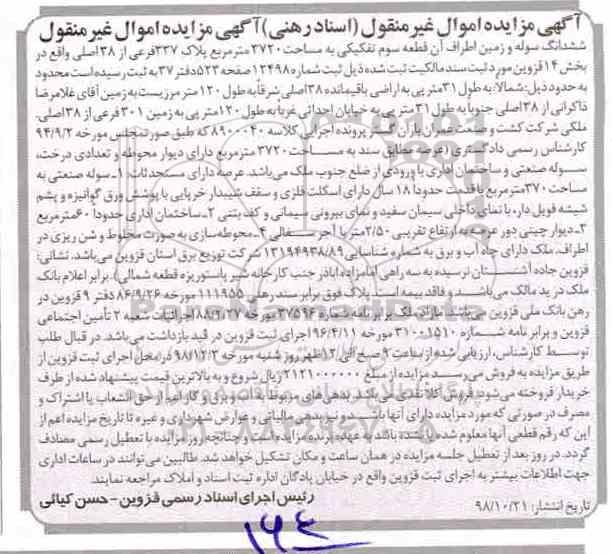 آگهی مزایده اموال غیر منقول (اسناد رهنی) آگهی مزایده اموال غیر منقول
ششدانگ سوله و زمین اطراف آن قطعه سوم تفکیکی به مساحت ۳۷۲۰ مترمربع پلاک ۳۳۷ فرعی از ۳۸ اصلی واقع در
بخش ۱۴ قزوین مورد ثبت سند مالکیت ثبت شده ذیل ثبت شماره ۱۲۴۹۸ صفحه ۵۲۳ دفتر ۳۷ به ثبت رسیده است محدود
به حدود ذیل: شمالا: به طول ۳۱ متر پی به اراضی باقیمانده ۳۸ اصلی شرقاً به طول ۱۲۰ متر مرزیست به زمین آقای غلامرضا
ذاکرانی از ۳۸ اصلی جنوباً به طول ۳۱ متر پی به خیابان احداثی غرباً به طول ۱۲۰ متر پی به زمین ۳۰۱ فرعی از ۳۸ اصلی.
ملکی شرکت کشت و صنعت عمران یاران گستر پرونده اجرایی کلاسه ۸۹۰۰۰۴۰ که طبق صورتمجلس مورخه ۹۴/۹/۲
کارشناس رسمی دادگستری (عرصه مطابق سند به مساحت ۳۷۲۰ مترمربع دارای دیوار محوطه و تعدادی درخت،
سوله صنعتی و ساختمان اداری با ورودی از ضلع جنوب ملک می‌باشد. عرصه دارای مستحدثات: ۱ـ سوله صنعتی به
مساحت ۳۷۰ مترمربع با قدمت حدوداً ۱۸ سال دارای اسکلت فلزی و سقف شیبدار خرپایی با پوشش ورق گوانیزه و پشم
شیشه فویل دار، با نمای داخلی سیمان سفید و نمای بیرونی سیمانی و کف بتنی ۲ـ ساختمان اداری حدوداً ۶۰ مترمربع
۳ـ دیوار چینی دور عرصه به ارتفاع تقریبی ۲/۵۰ متر با آجر سفالی ۴ـ محوطه‌سازی به صورت مخلوط و شن ریزی در
اطراف. ملک دارای چاه آب و برق به شماره شناسایی ۱۳۱۹۴۹۳۸/۸۹ شرکت توزیع برق استان قزوین می‌باشد. نشانی:
قزوین جاده آشنستان نرسیده به سه راهی امامزاده اباذر جنب کارخانه شیر پاستوریزه قطعه شمالی). برابر اعلام بانک
ملک در ید مالک می‌باشد و فاقد بیمه است. پلاک فوق برابر سند رهنی ۱۱۱۹۵۵ مورخه ۸۶/۹/۲۶ دفتر ۹ قزوین در
رهن بانک ملی قزوین می‌باشد. مازاد ملک برابر نامه شماره ۳۷۵۹۶ مورخه ۸۸/۲/۲۷ اجرائیات شعبه ۲ تأمین اجتماعی
قزوین و برابر نامه شماره ۳۱۰۰۱۵۱۰ مورخه ۹۶/۴/۱۱ اجرای ثبت قزوین در قید بازداشت می‌باشد. در قبال طلب
توسط کارشناس، ارزیابی شده از ساعت ۹ صبح الی ۱۲ ظهر روز شنبه مورخه ۹۸/۱۲/۳ در محل اجرای ثبت قزوین از
طریق مزایده به فروش می‌رسد مزایده از مبلغ ۲۱۲۱۰۰۰۰۰۰ ریال شروع و به بالاترین قیمت پیشنهاد شده از طرف
خریدار فروخته می‌شود. فروش کلاً نقدی می‌باشد. بدهی‌های مربوط به آب، برق و گاز اعم از حق انشعاب یا اشتراک و
مصرف در صورتی که مورد مزایده دارای آنها باشد و نیز بدهی مالیاتی و عوارض شهرداری و غیره تا تاریخ مزایده اعم از
این که رقم قطعی آنها معلوم شده یا نشده باشد به عهده برنده مزایده است. چنانچه روز مزایده با تعطیل رسمی مصادف
گردد، در روز بعد از تعطیل جلسه مزایده در همان ساعت و مکان تشکیل خواهد شد. طالبین می‌توانند در ساعات اداری
جهت اطلاعات بیشتر به اجرای ثبت قزوین واقع در خیابان پادگان اداره ثبت اسناد و املاک مراجعه نمایند.
رئیس اجرای اسناد رسمی قزوین - حسن کیائی
تاریخ انتشار: ۹۸/۱۰/۲۱